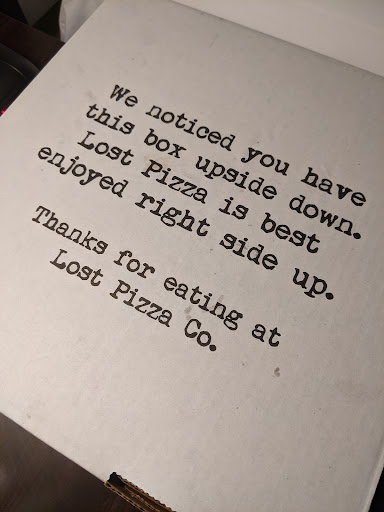 We noticed you have
this box upside down.
Lost Pizza is best
enjoyed right side up.
Thanks for eating at
Lost Pizza Co.